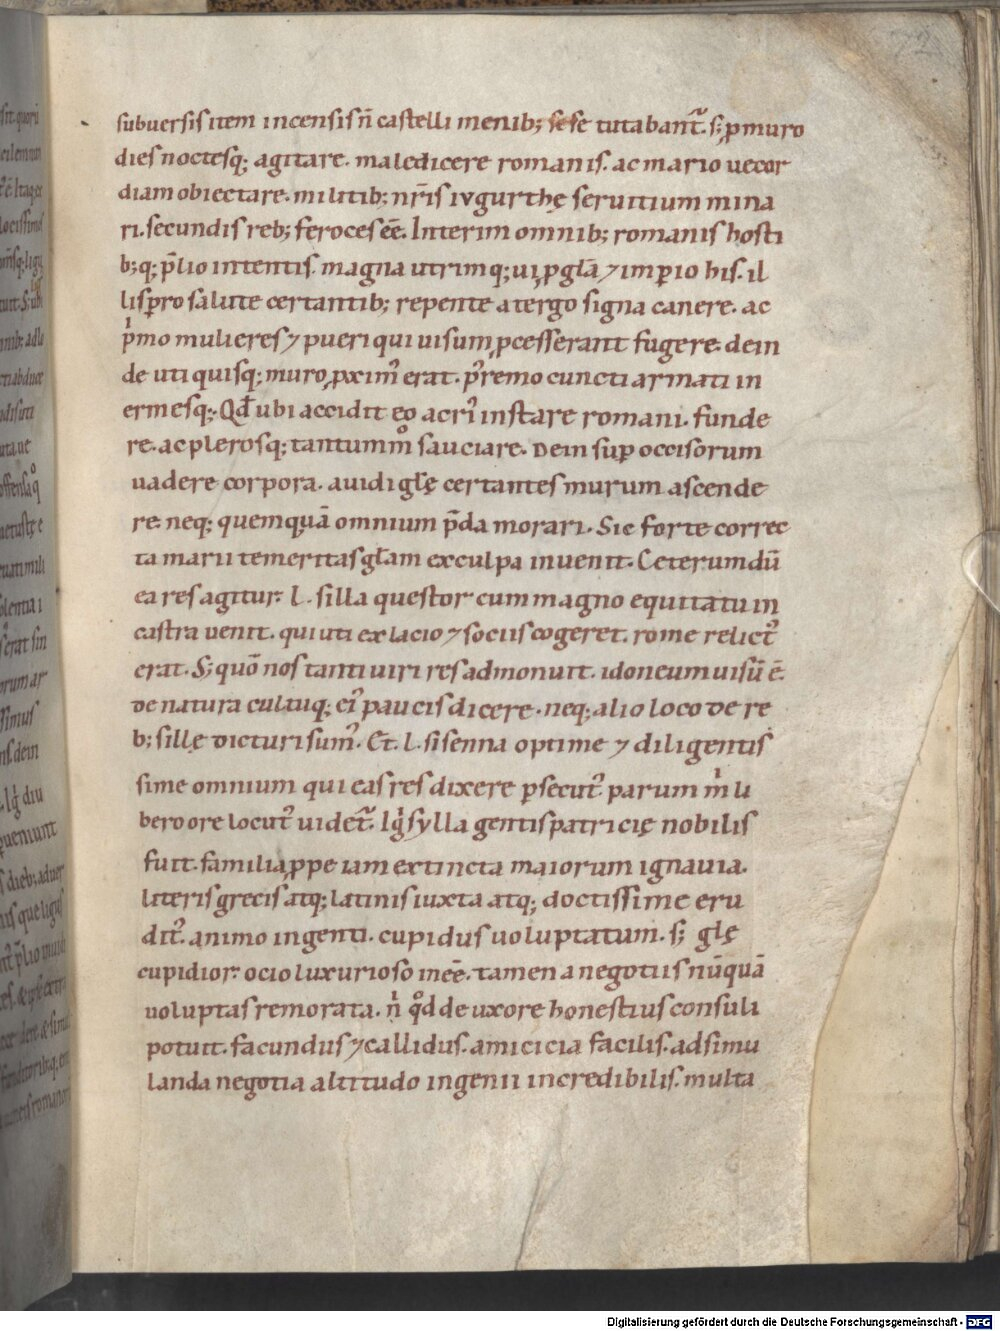 72
subuersis item incensis n̄ castelli menib; sese tutabant᷑. s; ꝓ muro
dies noctesq; agitare. maledicere romanis. ac mario uecor
diam obiectare. militib; nr̄is iugurthę seruitium mina
ri. secundis reb; feroces eē. Interim omnib; romanis hosti
b;q; p̄lio intentis. magna utrimq; ui, ꝓ gl̄a ⁊ imꝑio his. il
lis pro salute certantib; repente a tergo signa canere. ac
pͥmo mulieres ⁊ pueri qui uisum ꝓcesserant fugere. dein
de uti quisq; muro ꝓxim᷑ erat. p᷑remo cuncti armati in
ermesq;. Qd̄ ubi accidit eo acri᷑ instare romani. funde
re. ac plerosq; tantummͦ sauciare. Dein suꝑ occisorum
uadere corpora. auidi gl̄ę certantes murum ascende
re. neq; quemquā omnium p̄da morari. Sic forte correc
ta marii temeritas gl̄am ex culpa inuenit. Ceterum dū
ea res agitur. L. silla questor cum magno equitatu in
castra uenit. qui uti ex lacio ⁊ sociis cogeret. rome relict᷑
erat. S; quō nos tanti uiri res admonuit. idoneum uisū ē.
de natura cultuq; ei᷑ paucis dicere. neq; alio loco de re
b; sillę dicturi sum᷑. Et. L. sisenna optime ⁊ diligentis
sime omnium qui eas res dixere ꝑsecut᷑ parum mͥ li
bero ore locut᷑ uidet᷑. Igͥ sylla gentis patricię nobilis
fuit. familia ꝓpe iam extincta maiorum ignauia.
literis grecis atq; latinis iuxta atq; doctissime eru
dit᷑. animo ingenti. cupidus uoluptatum. s; gl̄ę
cupidior. ocio luxurioso i᷑n eē. tamen a negotiis nūquā
uoluptas remorata. nͥ qͦd de uxore honestius consuli
potuit. facundus ⁊ callidus. amicicia facilis. ad simu
landa negotia altitudo ingenii incredibilis. multa
Digitalisierung gefördert durch die Deutsche Forschungsgemeinschaft - DFG